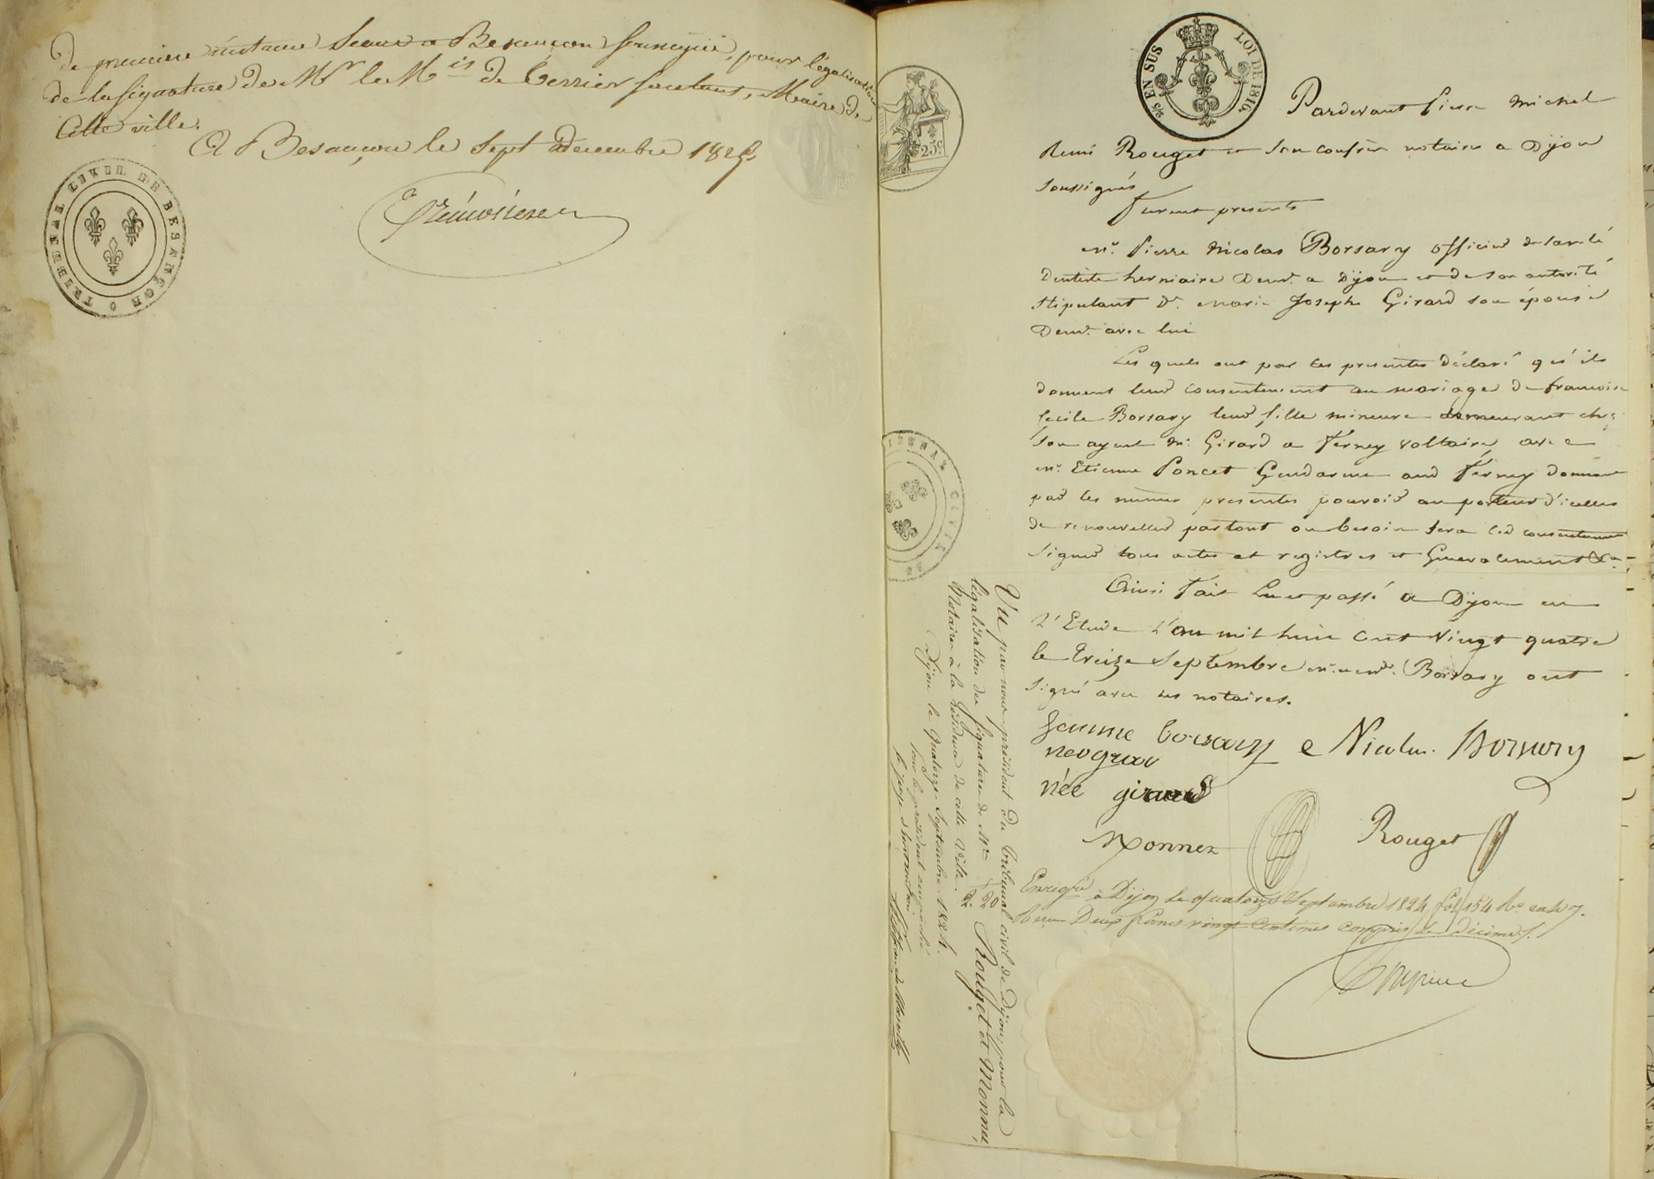 de première instance Séant à Besançon soussigné, pour légalisation
de la signature de Mr le Mis de Terrier Santans, Maire de
cette ville.
A Besançon le Sept Décembre 182
TRIBUNAL CIVIL DE BESANÇON
25c.
EN SUS LOI DE 1816.
Pardevant Pierre Michel
Remi Rouget et son confrère notaires a Dijon
soussignés
Furent présents
mr. Pierre Nicolas Borsary officier de santé
Dentiste herniaire demt. a Dijon et de son autorité
stipulant De. Marie Joseph Girard son épouse
demt. avec lui
Les quels ont par les presentes déclaré qu'ils
donnent leur consentement au mariage de francoise
Cecile Borsary leur fille mineure demeurant chez
son ayeul mr. Girard a Ferney Voltaire, avec
mr. Etienne Poncet Gendarme aud Ferney donnant
par les mêmes presentes pouvoir au porteur d'icelles
de renouveller partout ou besoin sera led consentement
signer tous actes et registres et Generalement &a.
Ainsi Fait Lu et passé a Dijon en
L'Etude L'an mil huit Cent Vingt quatre
le treize Septembre mr. et md. Borsary ont
signé avec les notaires.
femme borsary e Nicolas Borsary
née girard
Monnet Rouget
Enregré. à Dijon le quatorze Septembre 1824 fol 154
Reçu Deux francs vingt Centimes compris le Décime
Vu par nous président du tribunal civil de Dijon, pour la
légalisation des signatures de Mes. Rouget et Monnet,
Notaires à la Résidence de cette Ville.
Dijon le quatorze Septembre 1824.
pour le président empêché
le juge
TRIBUNAL CIVIL DE